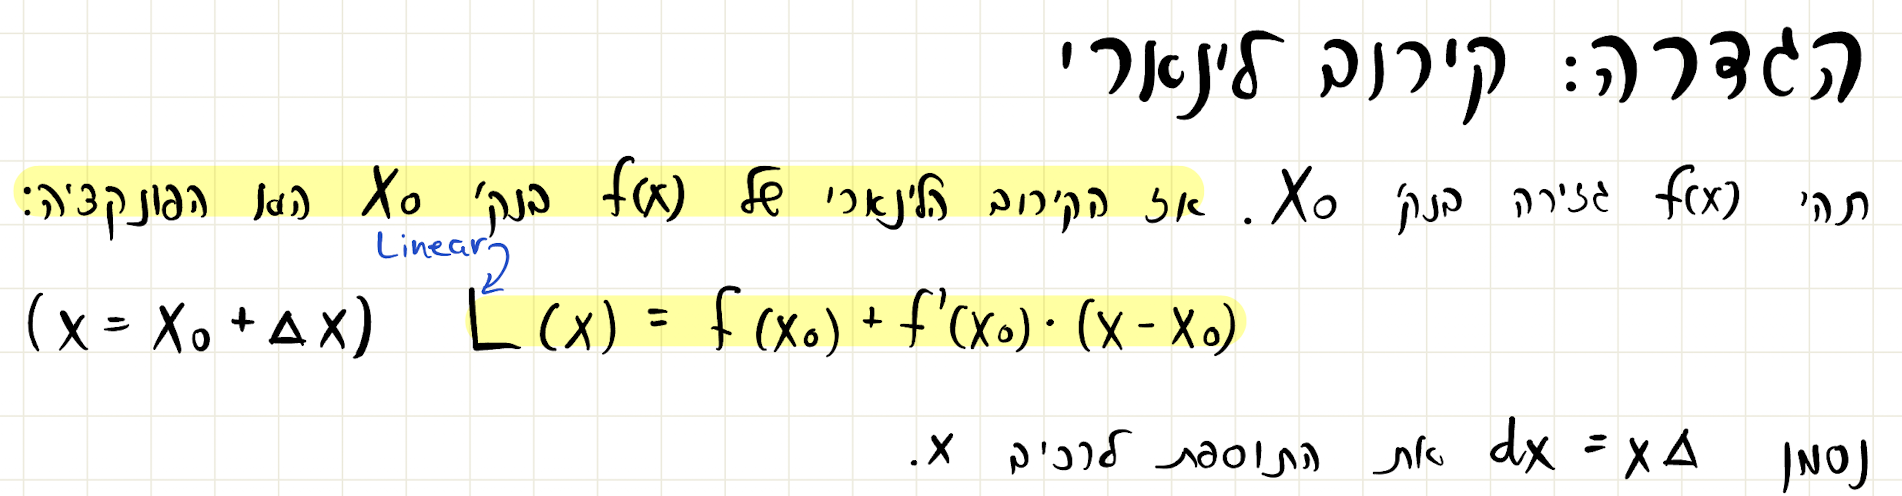 הגדרה: קירוב לינארי
תהי f(x) גזירה בנק' X₀. אז הקירוב הלינארי של f(x) בנק' X₀ הוא הפונקציה:
Linear
L(x) = f(x₀) + f'(x₀)·(x - x₀) (x = x₀ + Δx)
נסמן dx = xΔ את התוספת לרכיב x.